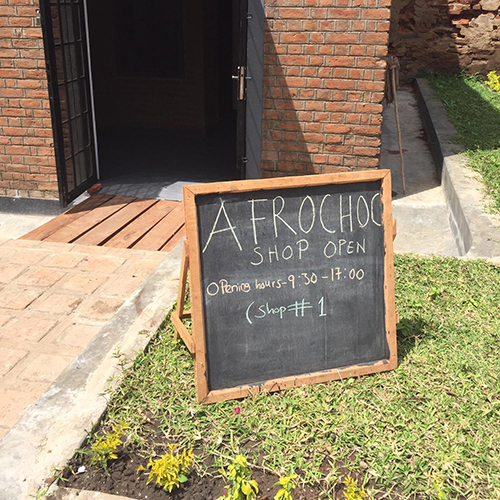 AFROCHOC
SHOP OPEN
Opening hours-9:30-17:00
(Shop # 1